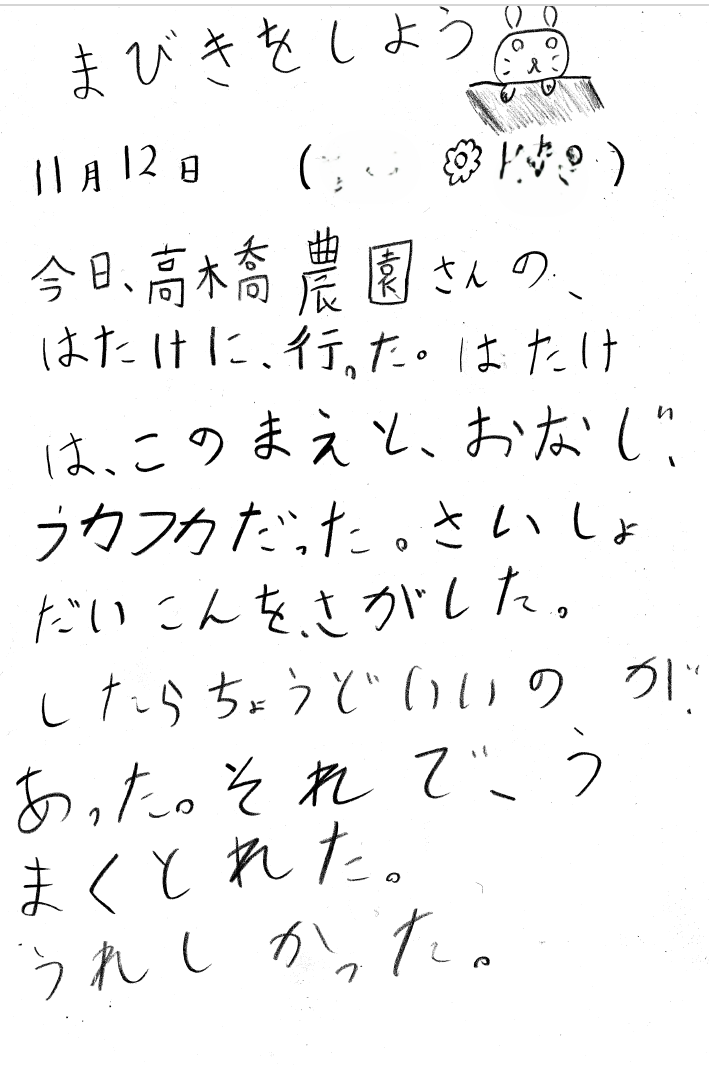 まびきをしよう
11月12日 ( )
今日、高木喬農園さんの、
はたけに、行った。はたけ
は、このまえと、おなじ、
うカフカだった。さいしょ
だいこんを、さがした。
したらちょうどいいのが、
あった。それで、う
まくとれた。
うれしかった。